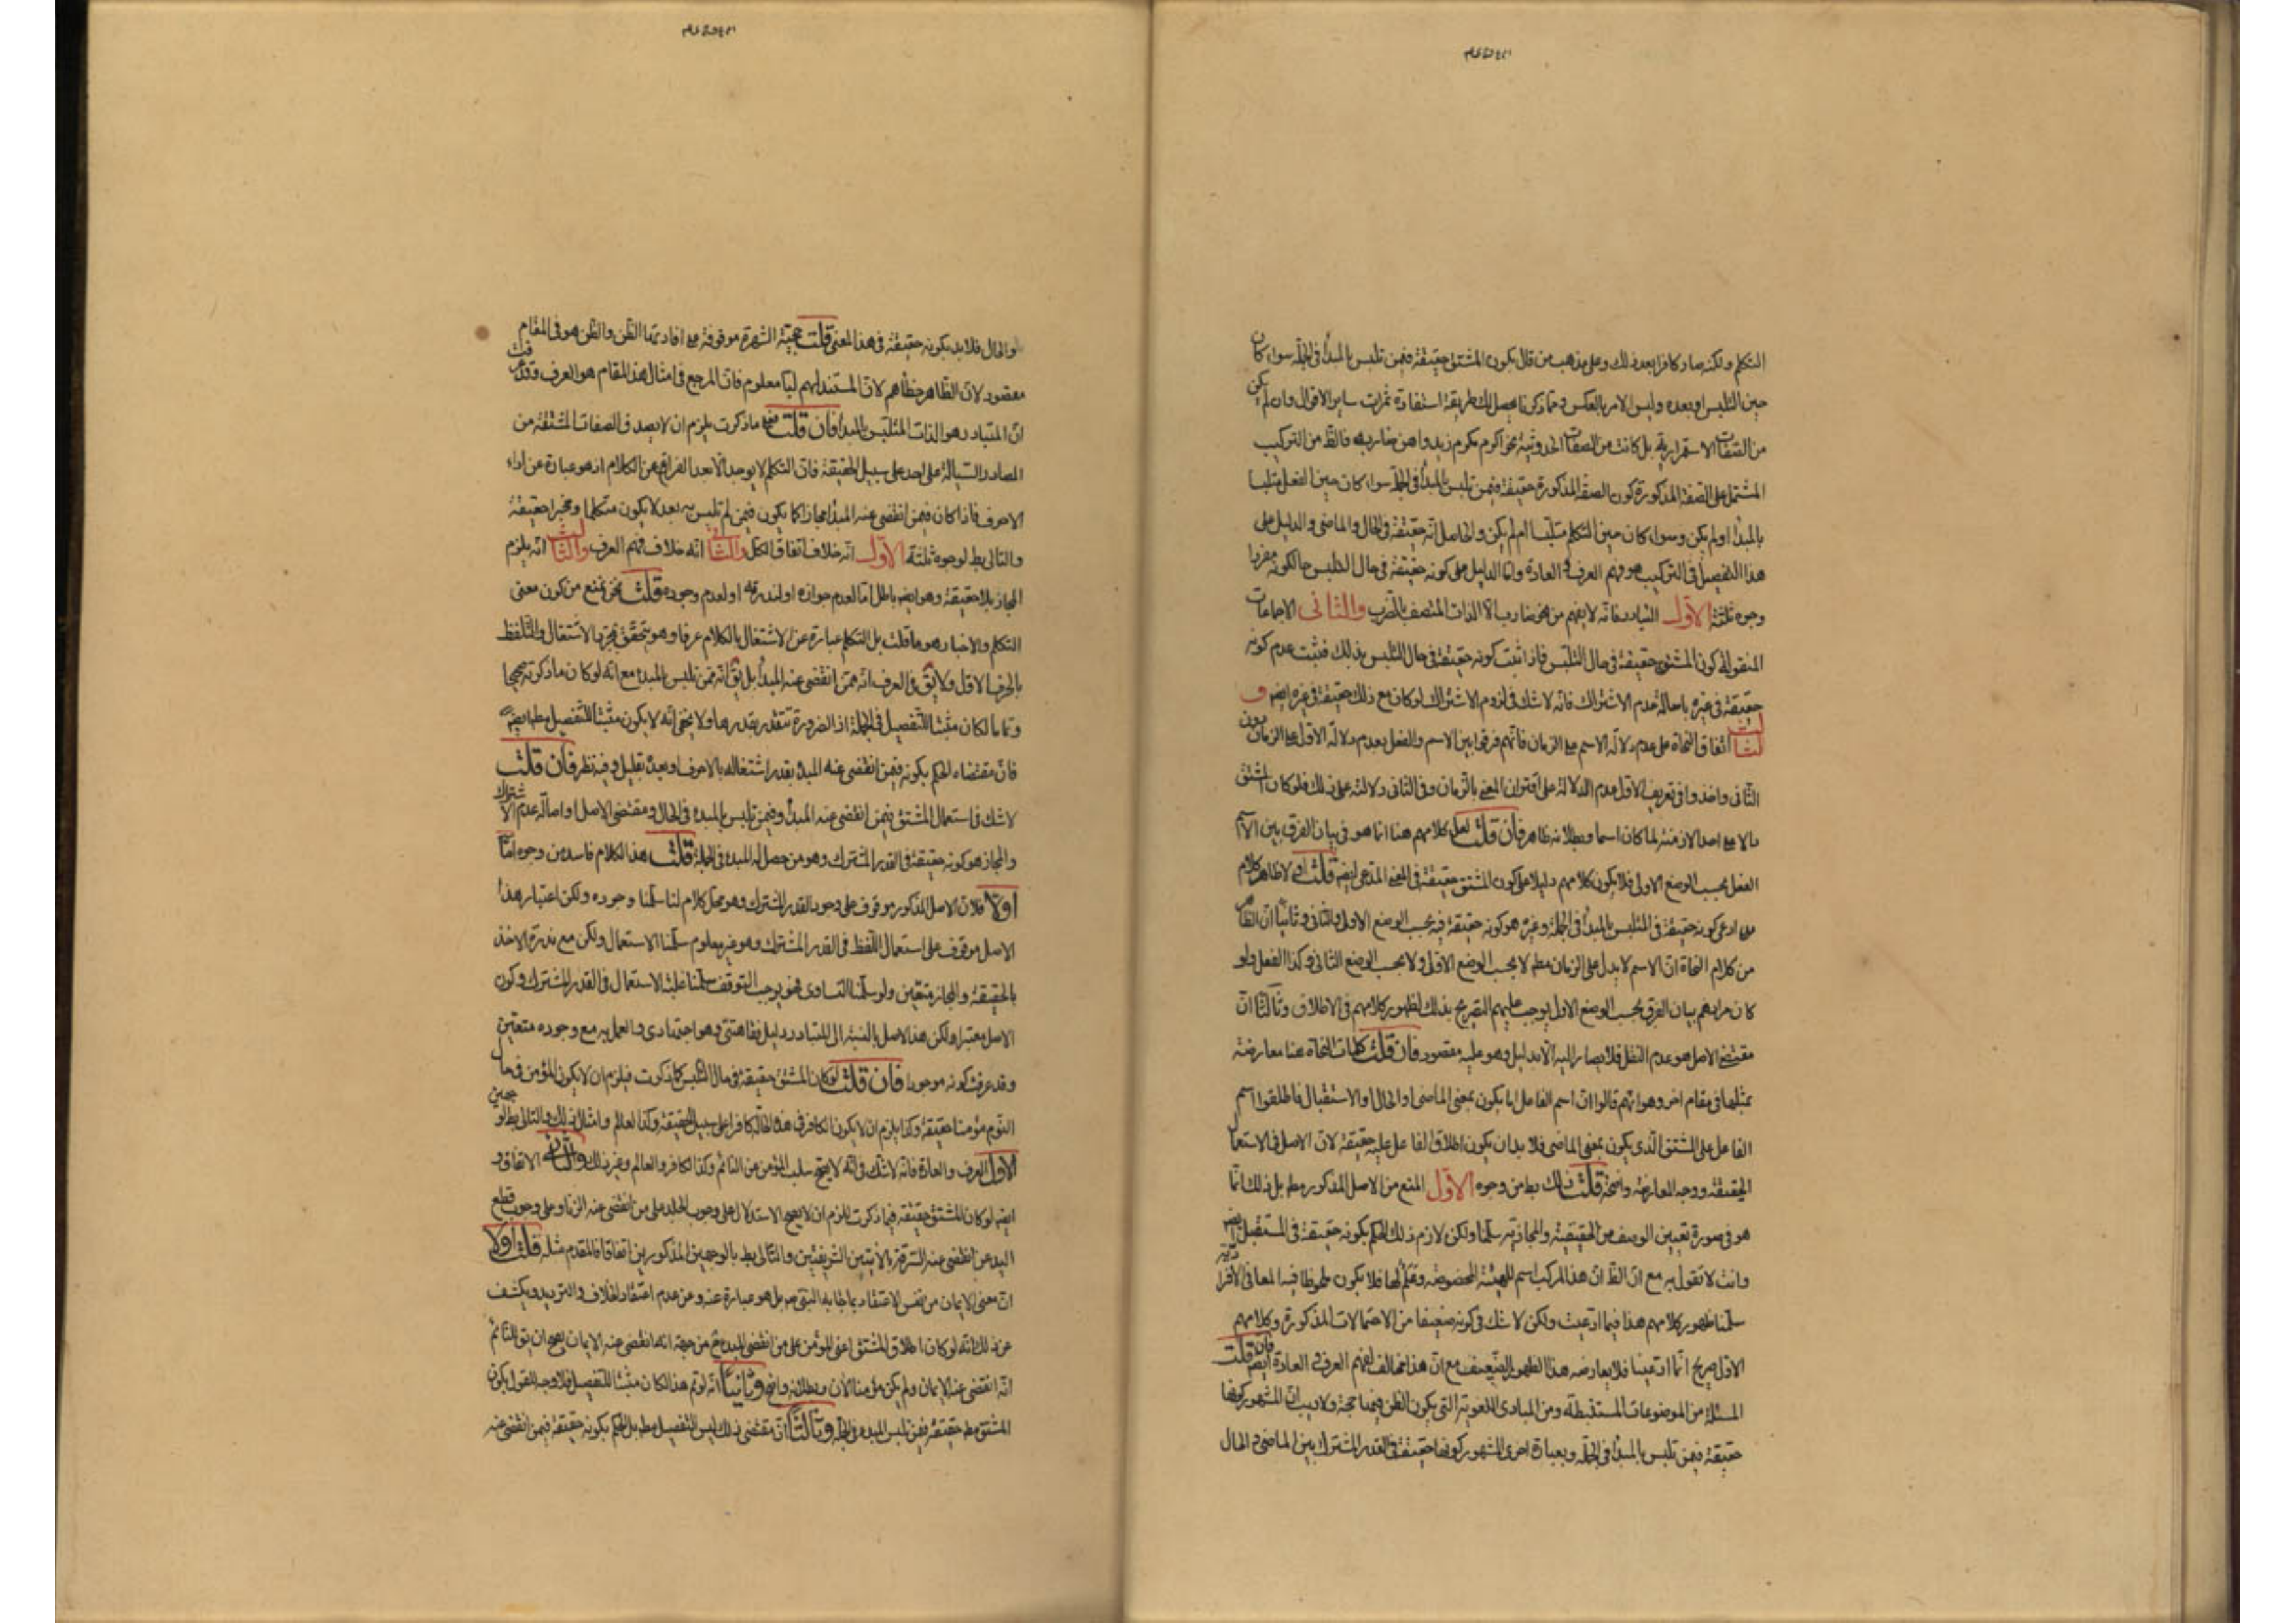 التكلم ولكنه صار كافرا بعد ذلك وعلى مذهب من قال بكون المشتق حقيقة فيمن تلبس بالمبدأ في الجملة سواء كان
حين التلبس او بعده وليس الامر بالعكس ومما ذكرنا يحصل لك طريقة استفادة ثمرات ساير الاقوال وان لم يكن
من الصفات الاستمرارية بل كانت من الصفات الحدوثية نحو اكرم مكرم زيد واهن ضاربه فالظ من التركيب
المشتمل على الصفة المذكورة كون الصفة المذكورة حقيقة فيمن تلبس بالمبدأ في الجملة سواء كان حين الفعل متلبسا
بالمبدأ او لم يكن وسواء كان حين التكلم متلبسا ام لم يكن والحاصل انه حقيقة في الحال والماضى والدليل على
هذا التفصيل في التركيب هو فهم العرف و العادة واما الدليل على كونه حقيقة في حال التلبس حالكونه مفردا
وجوه ثلثة الاول التبادر فانه لا يفهم من نحو ضارب الا الذات المتصف بالضرب والثانى الاجماعات
المنقولة كون المشتق حقيقة في حال التلبس فاذا ثبت كونه حقيقة في حال التلبس بذلك فيثبت عدم كونه
حقيقة في غيره باصالة عدم الاشتراك فانه لا شك في لزوم الاشتراك لو كان مع ذلك حقيقة في غيره ايضا و
الثالث اتفاق النحاة على عدم دلالة الاسم على الزمان فانهم فرقوا بين الاسم والفعل بعدم دلالة الاول على الزمان دون
الثانى واخذوا في تعريف الاول عدم الدلالة على اقتران المعنى بالزمان وفى الثانى دلالته على ذلك فلو كان المشتق
دالا على احد الازمنة لما كان اسما وبطلانه ظاهر فان قلت لعل كلامهم هنا انما هو في بيان الفرق بين الاسم
الفعل بحسب الوضع الاولى فلا يكون كلامهم دليلا على كون المشتق حقيقة في المعنى المدعى ايضا قلت اولا ظاهر كلام
من ادعى كونه حقيقة في المتلبس بالمبدأ في الجملة وغيره هو كونه حقيقة فيه بحسب الوضع الاول والثانى وثانيا ان الظاهر
من كلام النحاة ان الاسم لا يدل على الزمان مطلقا لا بحسب الوضع الاول ولا بحسب الوضع الثانى وكذا الفعل ولو
كان مرادهم بيان الفرق بحسب الوضع الاول يوجب عليهم التصريح بذلك لظهور كلامهم في الاطلاق وثالثا ان
مقتضى الاصل هو عدم النقل فلا يصار اليه الا بدليل وهو عليه مفقود فان قلت كلمات النحاة هنا معارضة
بمثلها في مقام اخر وهو انهم قالوا ان اسم الفاعل اما يكون بمعنى الماضى او الحال او الاستقبال فاطلقوا اسم
الفاعل على المشتق الذى يكون بمعنى الماضى فلا بد ان يكون اطلاق الفاعل عليه حقيقة لان الاصل في الاستعمال
الحقيقة ووجه المعارضة واضحة قلت ذلك بط من وجوه الاول المنع من الاصل المذكور مط بل ذلك انما
هو في صورة تعيين الوصف من الحقيقية والمجازية سلمنا ولكن لازم ذلك الحكم بكونه حقيقة في المستقبل ايضا
وانت لا تقول به مع ان الظ ان هذا المركب اسم للهيئة المخصوصة وعلم لها فلا يكون ملحوظا فيه المعانى الافرادية
سلمنا ظهور كلامهم هذا فيما ادعيت ولكن لا شك في كونه ضعيفا من الاحتمالات المذكورة وكلامهم
الاول صريح انما ادعينا فلا يعارضه هذا الظهور الضعيف مع ان هذا مخالف لفهم العرف و العادة ايضا فان قلت
المسئلة من الموضوعات المستنبطة ومن المبادى اللغوية التى يكون الظن فيها حجة ولا ريب ان المشهور كونها
حقيقة فيمن تلبس بالمبدأ في الجملة وبعبارة اخرى المشهور كونها حقيقة في القدر المشترك بين الماضى والحال
والحال فلا بد بكونه حقيقة في هذا المعنى قلت حجية الشهرة موقوفة على افادتها الظن والظن هو في المقام
مفقود لان الظاهر خطأهم لان المستند لهم لنا معلوم فان المرجع في امثال هذا المقام هو العرف وقد عرفت
ان المتبادر هو الذات المتلبس بالمبدأ فان قلت فعلى ما ذكرت يلزم ان لا يصدق الصفات المشتقة من
المصادر السيالة على احد على سبيل الحقيقة فان التكلم لا يوجد الا بعد الفراغ عن الكلام اذ هو عبارة عن اداء
الاحرف فاذا كان فيمن انقضى عنه المبدأ مجازا كما يكون فيمن لم تلبس به بعد لا يكون متكلما ومخبرا حقيقة
والتالى بط لوجوه ثلثة الاول انه خلاف اتفاق الكل والثانى انه خلاف فهم العرف والثالث انه يلزم
المجاز بلا حقيقة وهو ايضا باطل اما لعدم جوازه او لندرته او لعدم وجوده قلت نحن نمنع من كون معنى
التكلم والاخبار هو ما قلت بل التكلم عبارة عن الاشتغال بالكلام عرفا وهو يتحقق بمجرد الاشتغال في التلفظ
بالحرف الاول ولا يق في العرف انه ممن انقضى عنه المبدأ بل يق انه ممن تلبس بالمبدء مع انه لو كان ما ذكرته صحيحا
وتماما لكان مثبتا للتفصيل في الجملة اذ الضرورة تتقدر بقدرها ولا يخفى انه لا يكون مثبتا للتفصيل مطلقا ايضا
فان مقتضاه الحكم بكونه فيمن انقضى عنه المبدء بقدر اشتغاله بالاحرف وبعده بقليل وفيه نظر فان قلت
لا شك في استعمال المشتق فيمن انقضى عنه المبدأ وفيمن تلبس بالمبدء في الحال ومقتضى الاصل اصالة عدم الاشتراك
والمجاز هو كونه حقيقة في القدر المشترك وهو من حصل له المبدء في الجملة قلت هذا الكلام فاسد من وجوه اما
اولا فلان الاصل المذكور موقوف على وجود القدر المشترك وهو محل كلام لنا سلمنا وجوده ولكن اعتبار هذا
الاصل موقوف على استعمال اللفظ في القدر المشترك وهو غير معلوم سلمنا الاستعمال ولكن مع ندرته الاخذ
بالحقيقة والمجاز متعين ولو سلمنا التساوى فهو يوجب التوقف سلمنا غلبة الاستعمال في القدر المشترك وكون
الاصل معتبرا ولكن هذا الاصل بالنسبة الى التبادر دليل فقاهتى وهو اجتهادى والعمل به مع وجوده متعين
وقد عرفت كونه موجودا فان قلت لو كان المشتق حقيقة في حال التلبس كما ذكرت فيلزم ان لا يكون المؤمن في حال
النوم مؤمنا حقيقة وكذا يلزم ان لا يكون الكافر في هذه الحالة كافرا على سبيل الحقيقة وكذا العالم وامثال ذلك والتالى بط لوجهين
الاول العرف والعادة فانه لا شك في انه لا يصح سلب المؤمن من النائم وكذا الكافر والعالم وغير ذلك والثانى الاتفاق و
ايضا لو كان المشتق حقيقة فيما ذكرت للزم ان لا يصح الاستدلال على وجوب الجلد على من انقضى عنه الزنا وعلى وجوب قطع
اليد عن انقضى عنه السرقة بالايتين الشريفتين والتالى بط بالوجهين المذكورين اتفاقا فالمقدم مثله قلت اولا
ان معنى الايمان من نفس الاعتقاد بما جاء به النبى ص بل هو عبارة عنه وعن عدم اعتقاد الخلاف والترديد ويكشف
عن ذلك انه لو كان اطلاق المشتق اعنى المؤمن على من انقضى المبدء من جهة انه انقضى عنه الايمان يصح ان يق للنائم
انه انقضى عنه الايمان ولم يكن مؤمنا الان وبطلانه واضح وثانيا انه لو تم هذا لكان مثبتا للتفصيل فلا وجه للقول بكون
المشتق مط حقيقة فيمن تلبس المبدء في الجملة وثالثا ان مقتضى ذلك ليس التفصيل مط بل الحكم بكونه حقيقة فيمن انقضى عنه